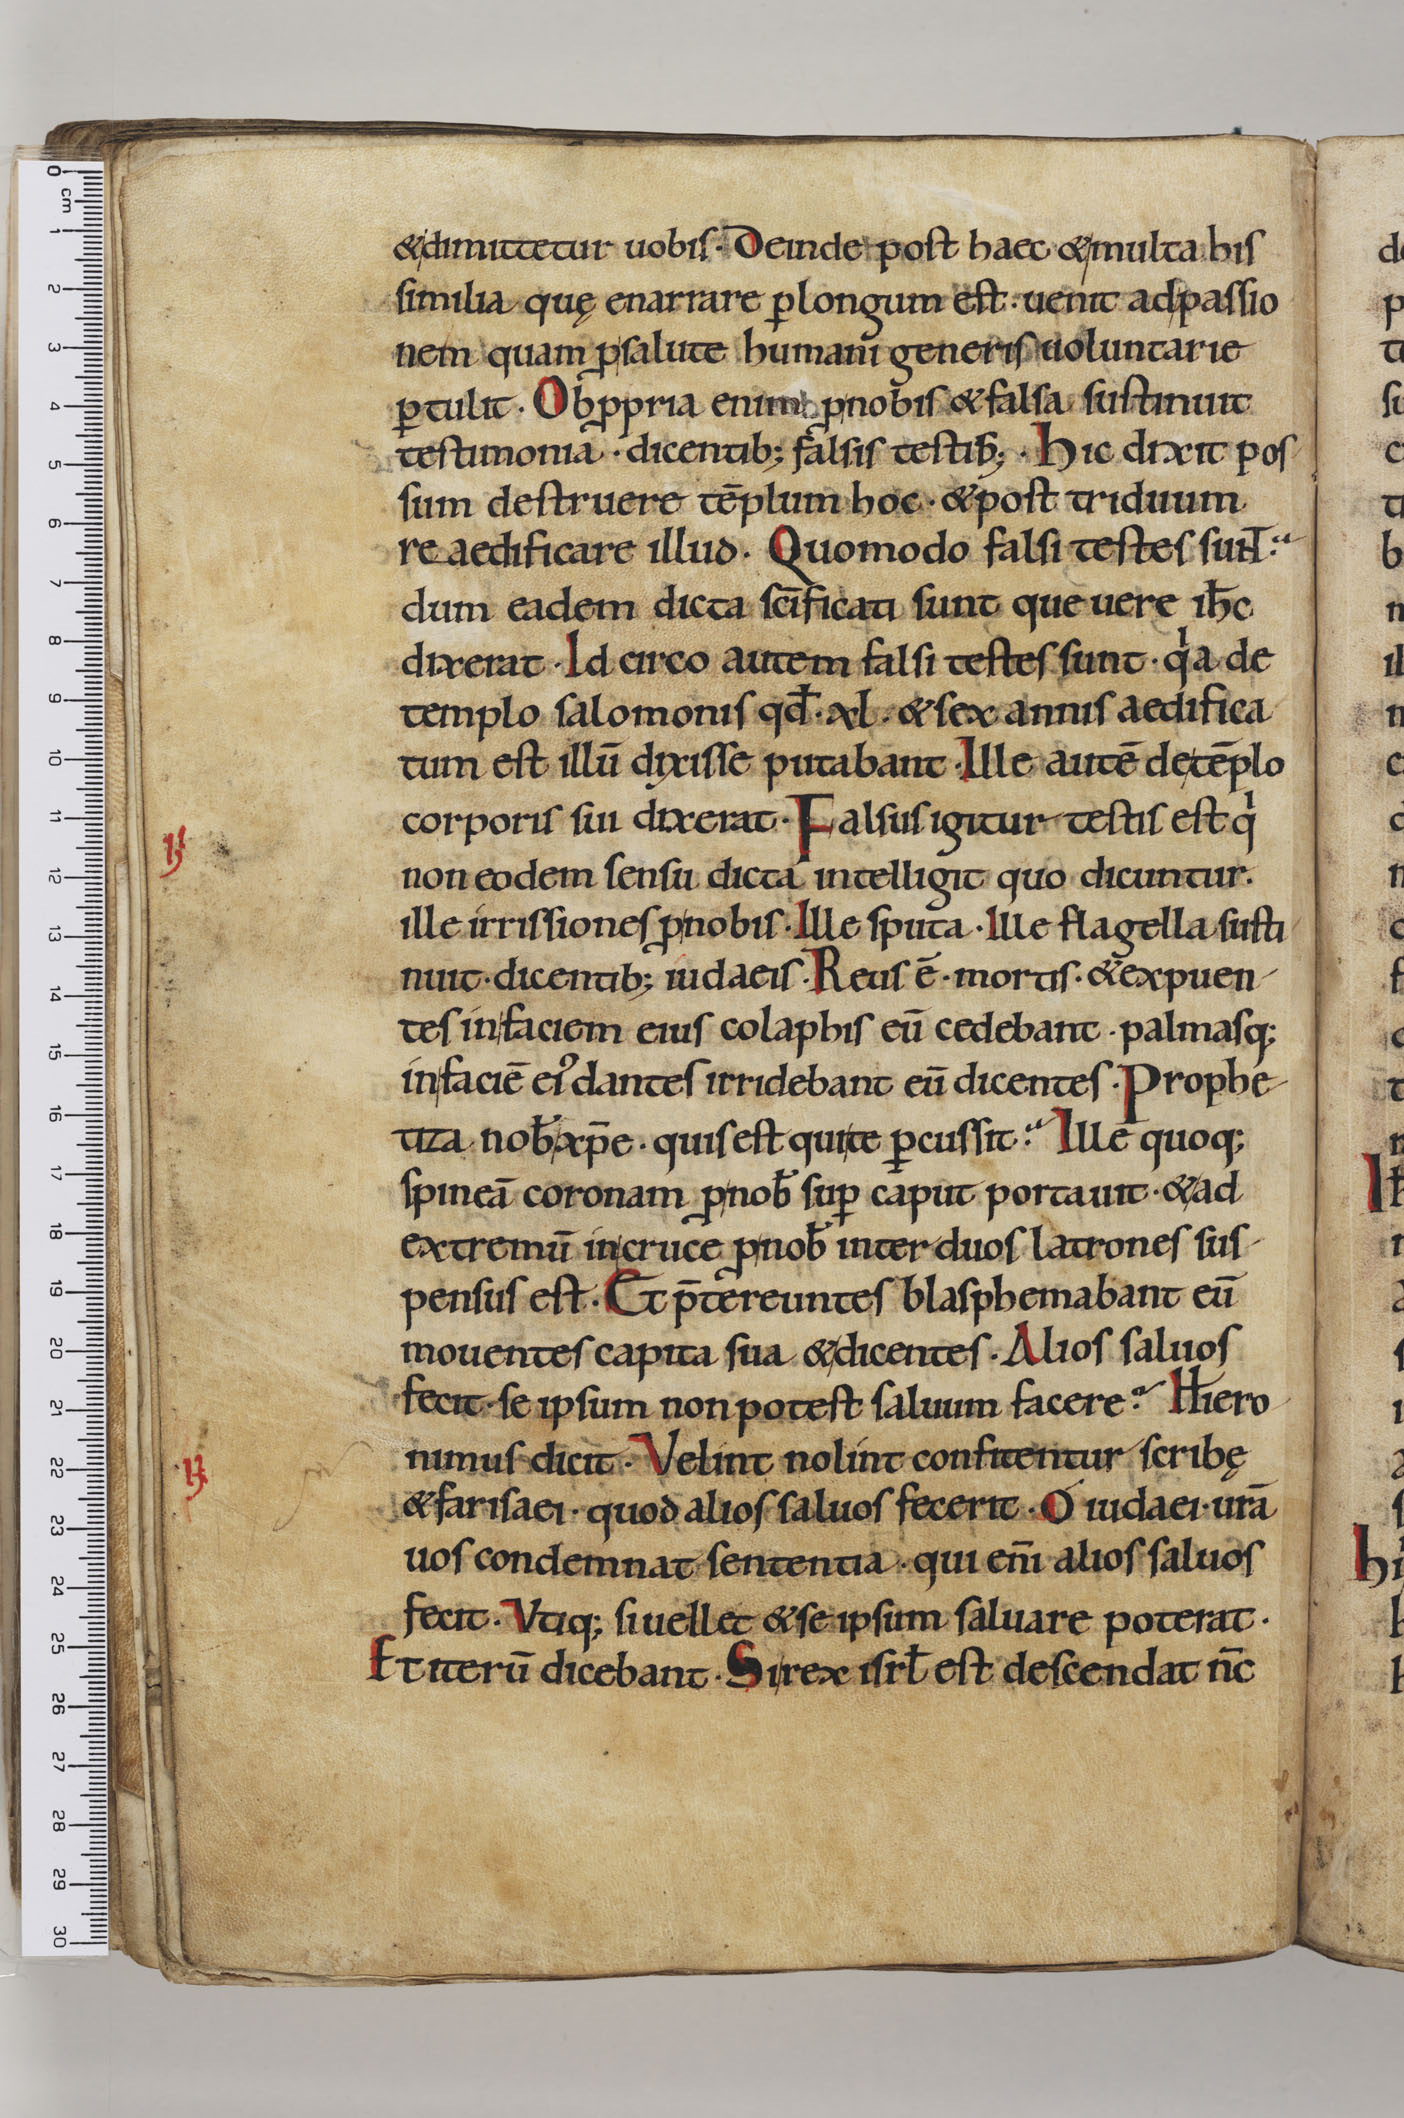 &dimittetur uobis. Deinde post haec & multa his
similia quę enarrare p̱longum est. uenit ad passio
nem quam ꝓsalute humani generis uoluntarie
ꝑtulit. Obꝓpria enim ꝓnobis & falsa sustinuit
testimonia. dicentib; falsis testib;. Hic dixit pos
sum destruere tēplum hoc. & post triduum
re aedificare illud. Quomodo falsi testes sunt:
dum eadem dicta sc̄ificati sunt que uere ih̄c
dixerat. Id circo autem falsi testes sunt. qͥa de
templo salomonis qđ. xl. & sex annis aedifica
tum est illū dixisse putabant. Ille autē de tēplo
corporis sui dixerat. Falsus igitur testis est qͥ
non eodem sensu dicta intelligit quo dicuntur.
ille irrissiones ꝓnobis. Ille sputa. Ille flagella susti
nuit. dicentib; iudaeis. Reus ē. mortis. & expuen
tes in faciem eius colaphis eū cedebant. palmasq;
in faciē eiꝰ dantes irridebant eū dicentes. Prophe
tiza nob̄ xp̄e. quis est qui te ꝑcussit: Ille quoq;
spineā coronam ꝓnob̄ suꝑ caput portauit. & ad
extremū in cruce ꝓnob̄ inter duos latrones sus
pensus est. Et p̄tereuntes blasphemabant eū
mouentes capita sua & dicentes. Alios saluos
fecit. se ipsum non potest saluum facere: Hiero
nimus dicit. Velint nolint confitentur scribę
& farisaei. quod alios saluos fecerit. O iudaei. urā
uos condemnat sententia. qui eni̅ alios saluos
fecit. Vtiq; si uellet & se ipsum saluare poterat.
Et iterū dicebant. Si rex isrł est descendat nc̄